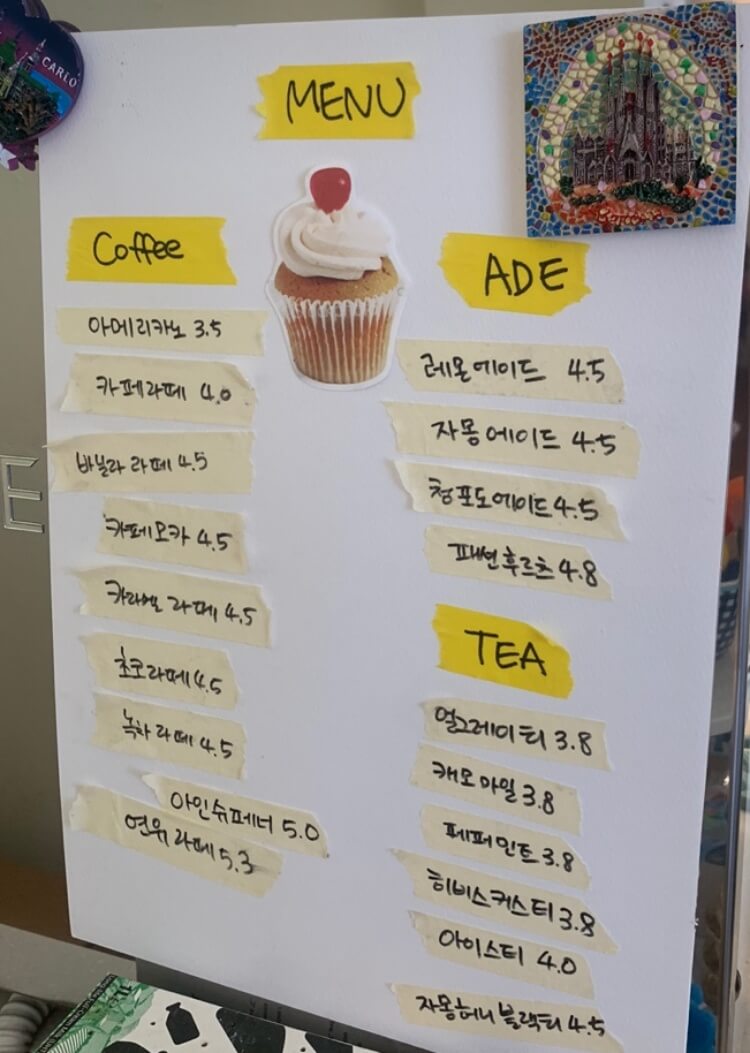 CARLO
MENU
Coffee
아메리카노 3.5
카페라떼 4.0
바닐라 라떼 4.5
카페모카 4.5
카라멜 라떼 4.5
초코라떼 4.5
녹차 라떼 4.5
아인슈페너 5.0
연유 라떼 5.3
ADE
레몬에이드 4.5
자몽에이드 4.5
청포도에이드 4.5
패션후르츠 4.8
TEA
얼그레이티 3.8
캐모마일 3.8
페퍼민트 3.8
히비스커스티 3.8
아이스티 4.0
자몽허니블랙티 4.5
E